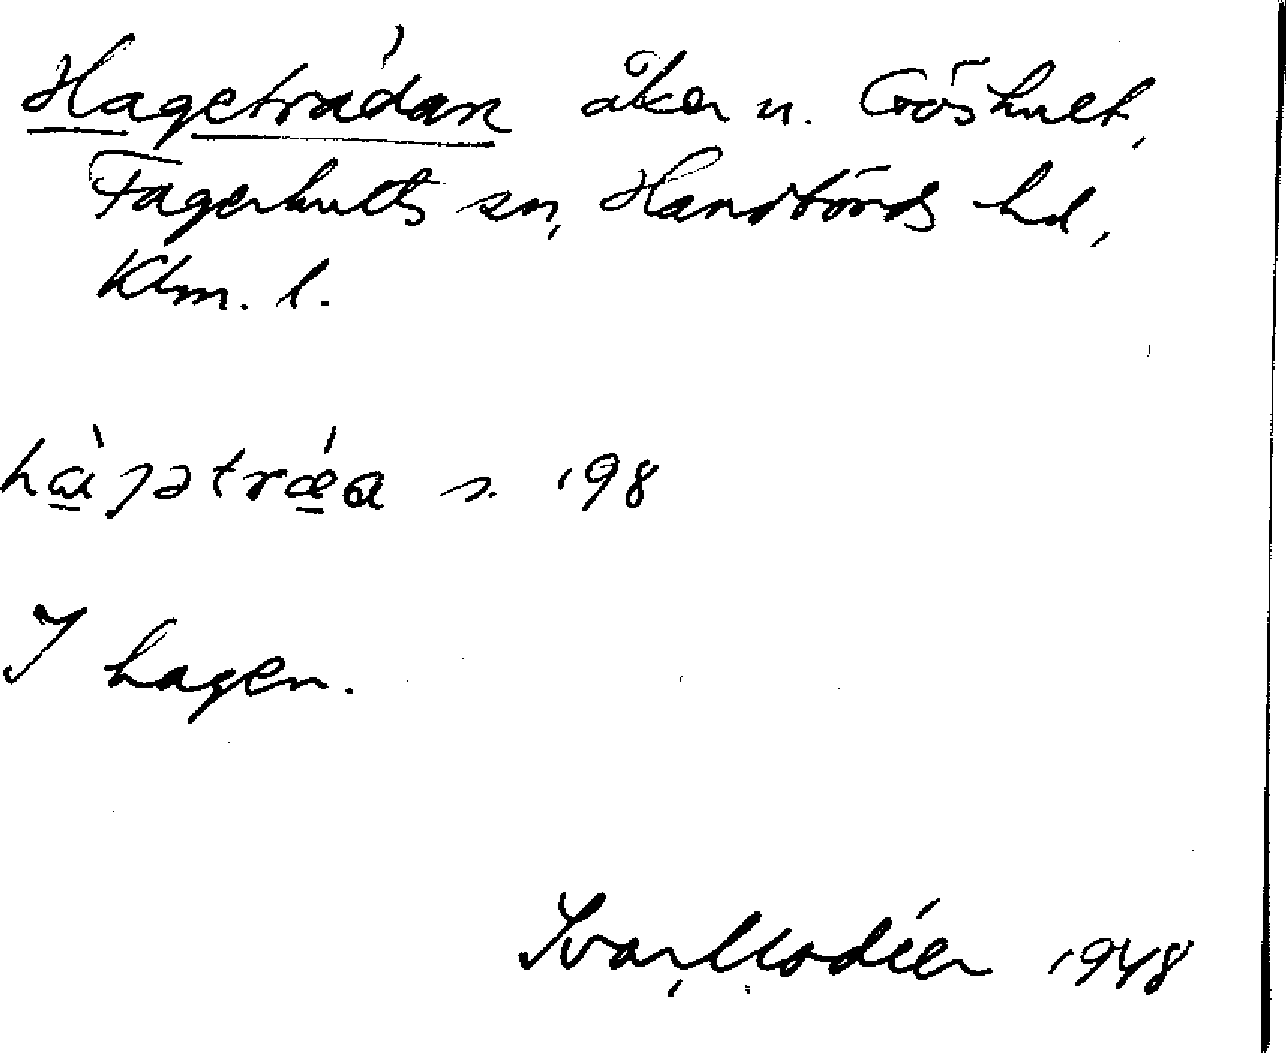 Hageträdan åker u. Gröshult,
Fagerhults sn, Handbörds hd,
Klm. l.
hàgətrǽa s. 198
I hagen.
Ivar Modéer 1948